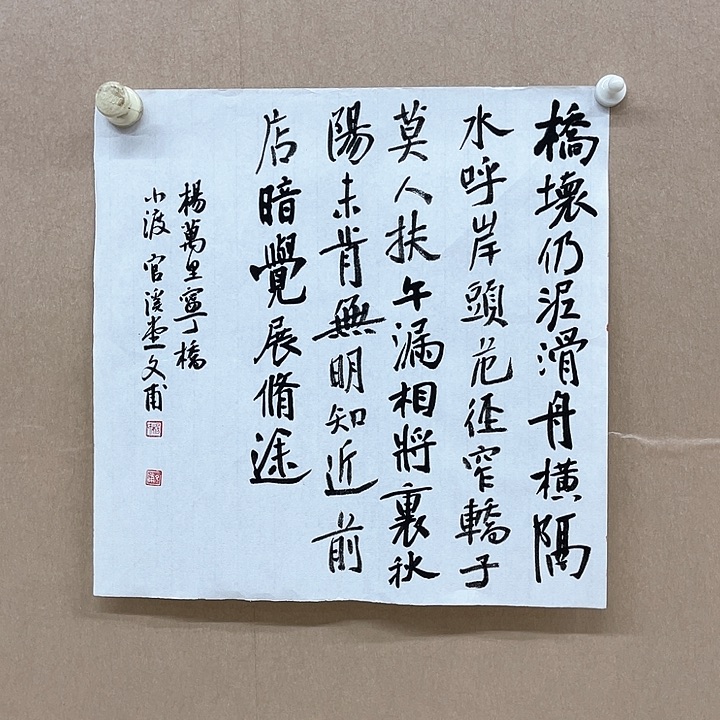 橋壞仍泥滑舟橫隔
水呼岸頭危徑窄轎子
莫人扶午漏相將裏秋
陽未肯無明知近前
店暗覺展脩途
楊萬里寧橋
小渡官溪壺文甫